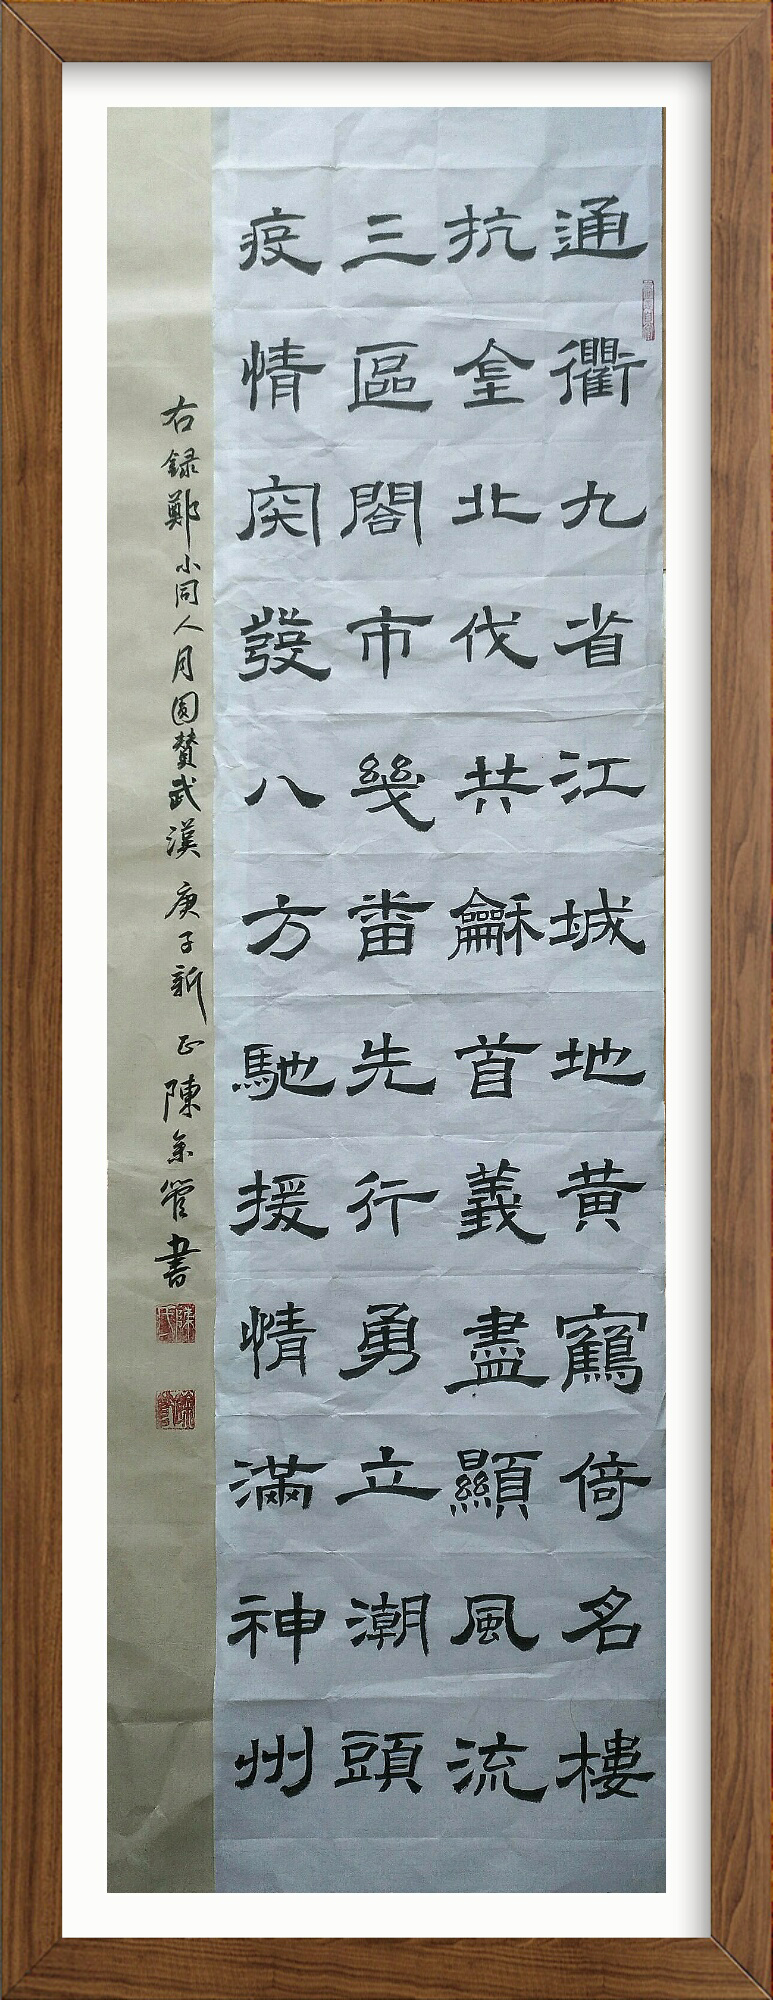 通衢九省江城地黄鶴倚名樓
抗金北伐共龢首義盡顯風流
三區閤市幾畨先行勇立潮頭
疫情突發八方馳援情滿神州
右録鄭小同人月圓贊武漢 庚子新正 陳 管書